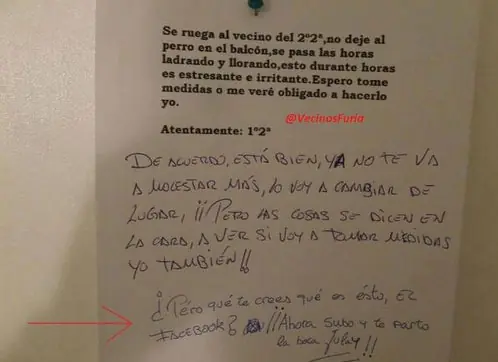 Se ruega al vecino del 2º2ª,no deje al
perro en el balcón,se pasa las horas
ladrando y llorando,esto durante horas
es estresante e irritante.Espero tome
medidas o me veré obligado a hacerlo
yo.
@VecinosFuria
Atentamente: 1º2ª
DE ACUERDO, ESTÁ BIEN, YA NO TE VA
A MOLESTAR MÁS, LO VOY A CAMBIAR DE
LUGAR, ¡¡PERO LAS COSAS SE DICEN EN
LA CARA, A VER SI VOY A TOMAR MEDIDAS
YO TAMBIÉN!!
¿Péro qué te crees qué es ésto, EL
FACEBOOK? ¡¡Ahora Subo y te parto
la boca Julay!!